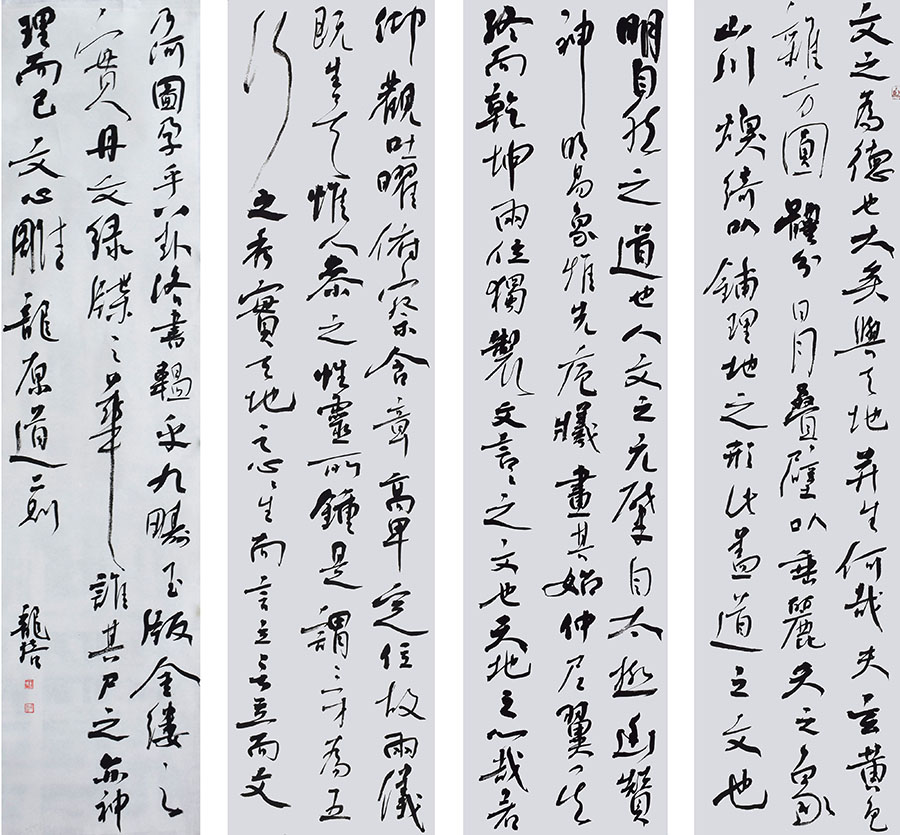 文之為德也大矣與天地并生何哉夫玄黃色
雜方圓體分日月疊璧以垂麗天之象
山川煥綺以鋪理地之形此蓋道之文也
仰觀吐曜俯察含章高卑定位故兩儀
既生矣惟人參之性靈所鍾是謂三才為五
行之秀實天地之心〻生而言立言立而文
明自然之道也人文之元肇自太極幽贊
神明易象惟先庖犧畫其始仲尼翼其
終而乾坤兩位獨製文言〻之文也天地之心哉若
乃河圖孕乎八卦洛書韞乎九疇玉版金鏤之
實丹文綠牒之華誰其尸之亦神
理而已 文心雕龍原道二則